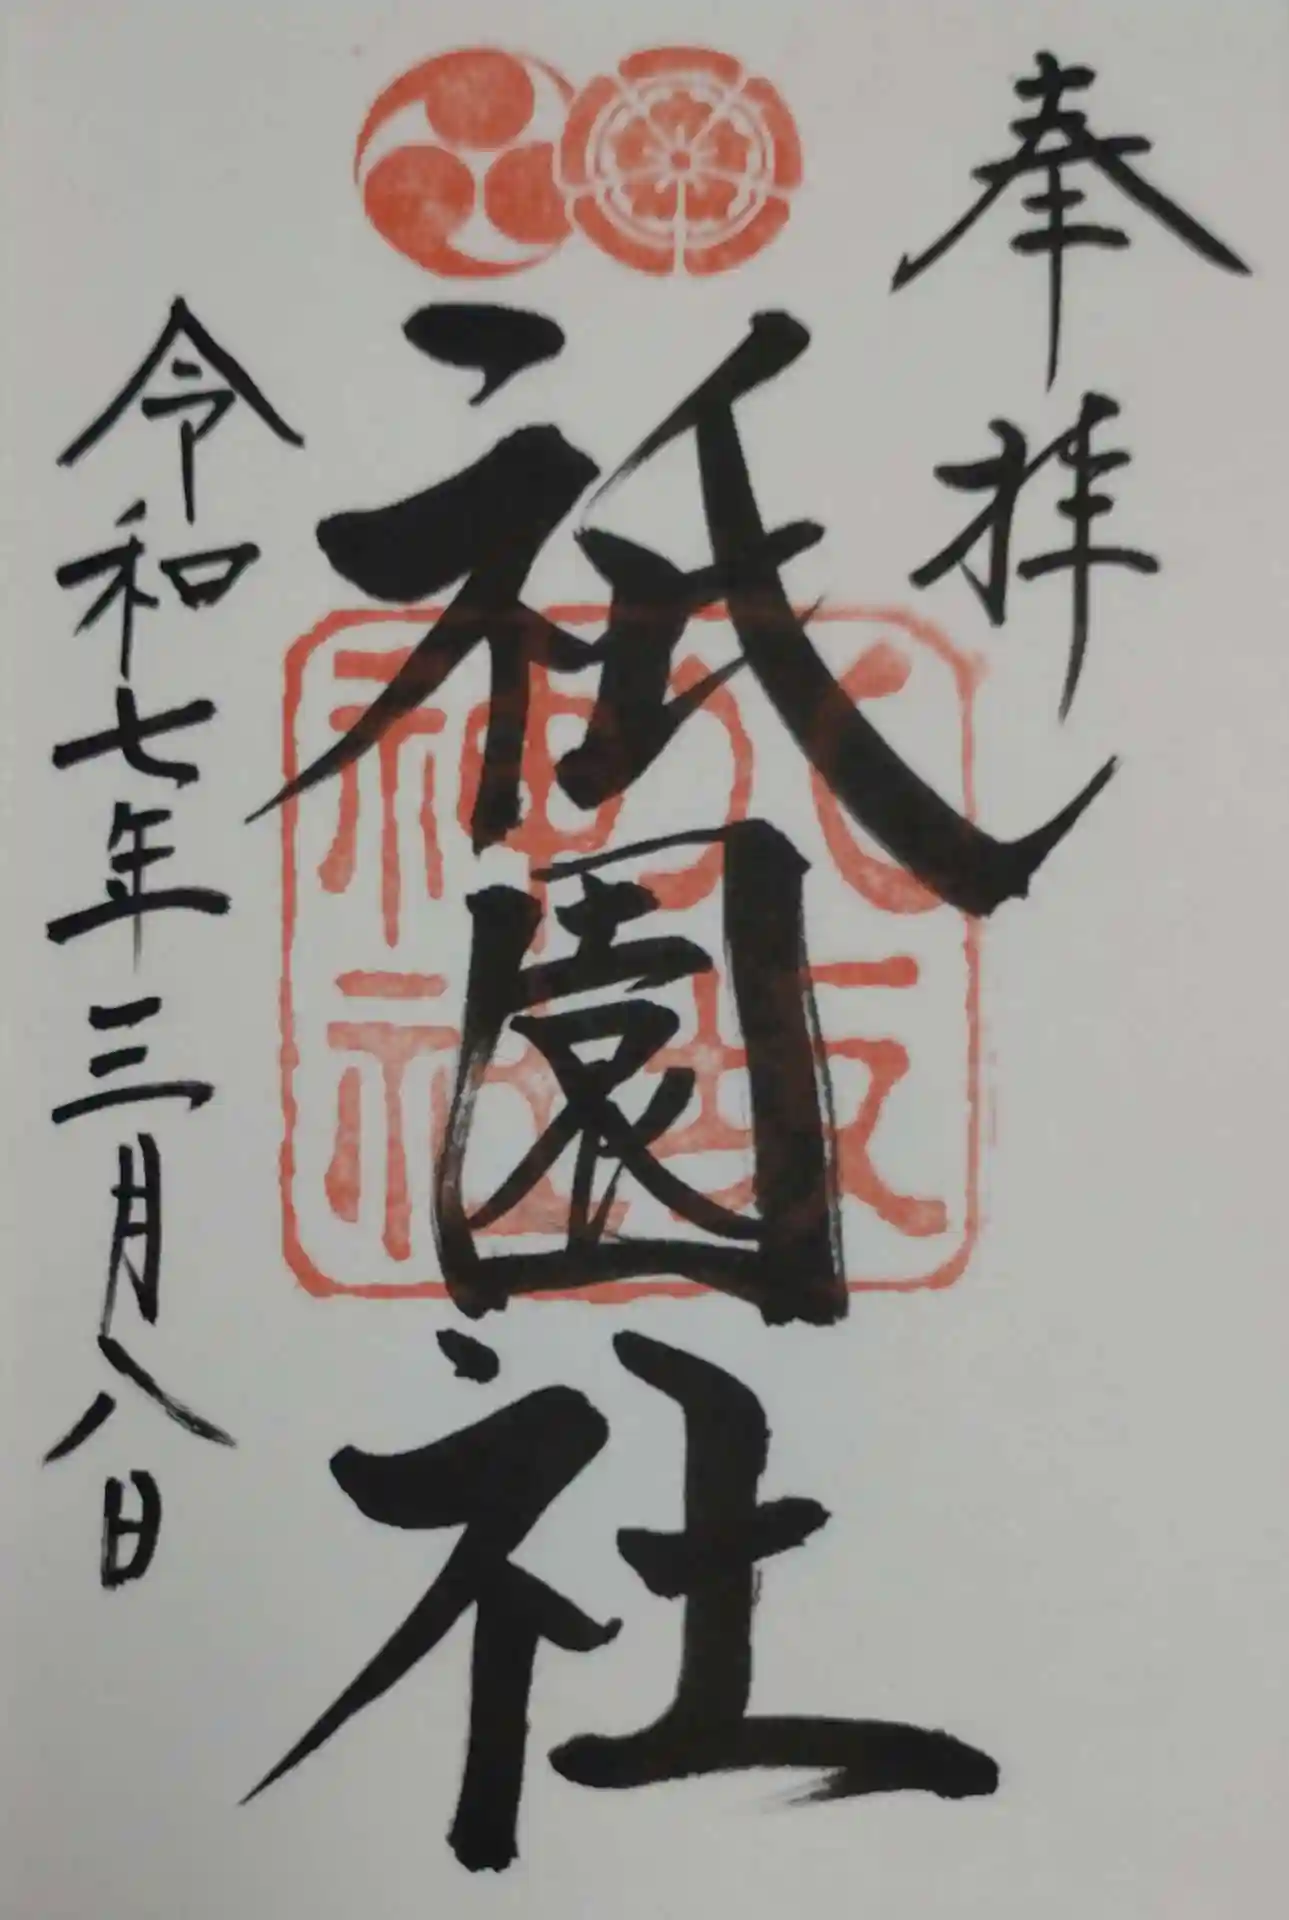 奉拝
祇園社
八坂
神社
令和七年三月八日